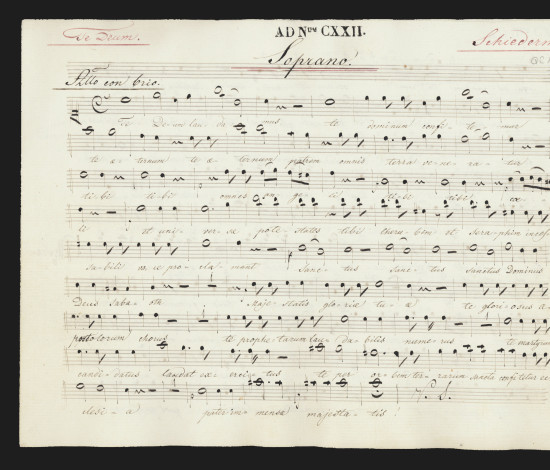 Te Deum.
AD Num CXXII.
Schiederm
Soprano.
Allo con brio.
Te Deum lauda mus te dominum confi- te- mur
te æ- ternum te æ- ternum patrem omnis terra ve- ne- ra- tur
tibi tibi omnes an ge- li
ti et uni- ver- sæ pote- states tibi cheru- bim et sera- phim
sa- bili vo- ce pro- cla- mant Sanc- tus sanc- tus sanctus Dominus
Deus Saba- oth Maje- statis glo- riæ tu- æ te glori- osus a-
postolorum chorus te prophe- tarum lau- da- bilis nume- rus te martyrum
candi- datus laudat ex- erci- tus te per or- bem ter- rarum sancta confitetur ec
clesi- a patrem im- mensæ majesta- tis!